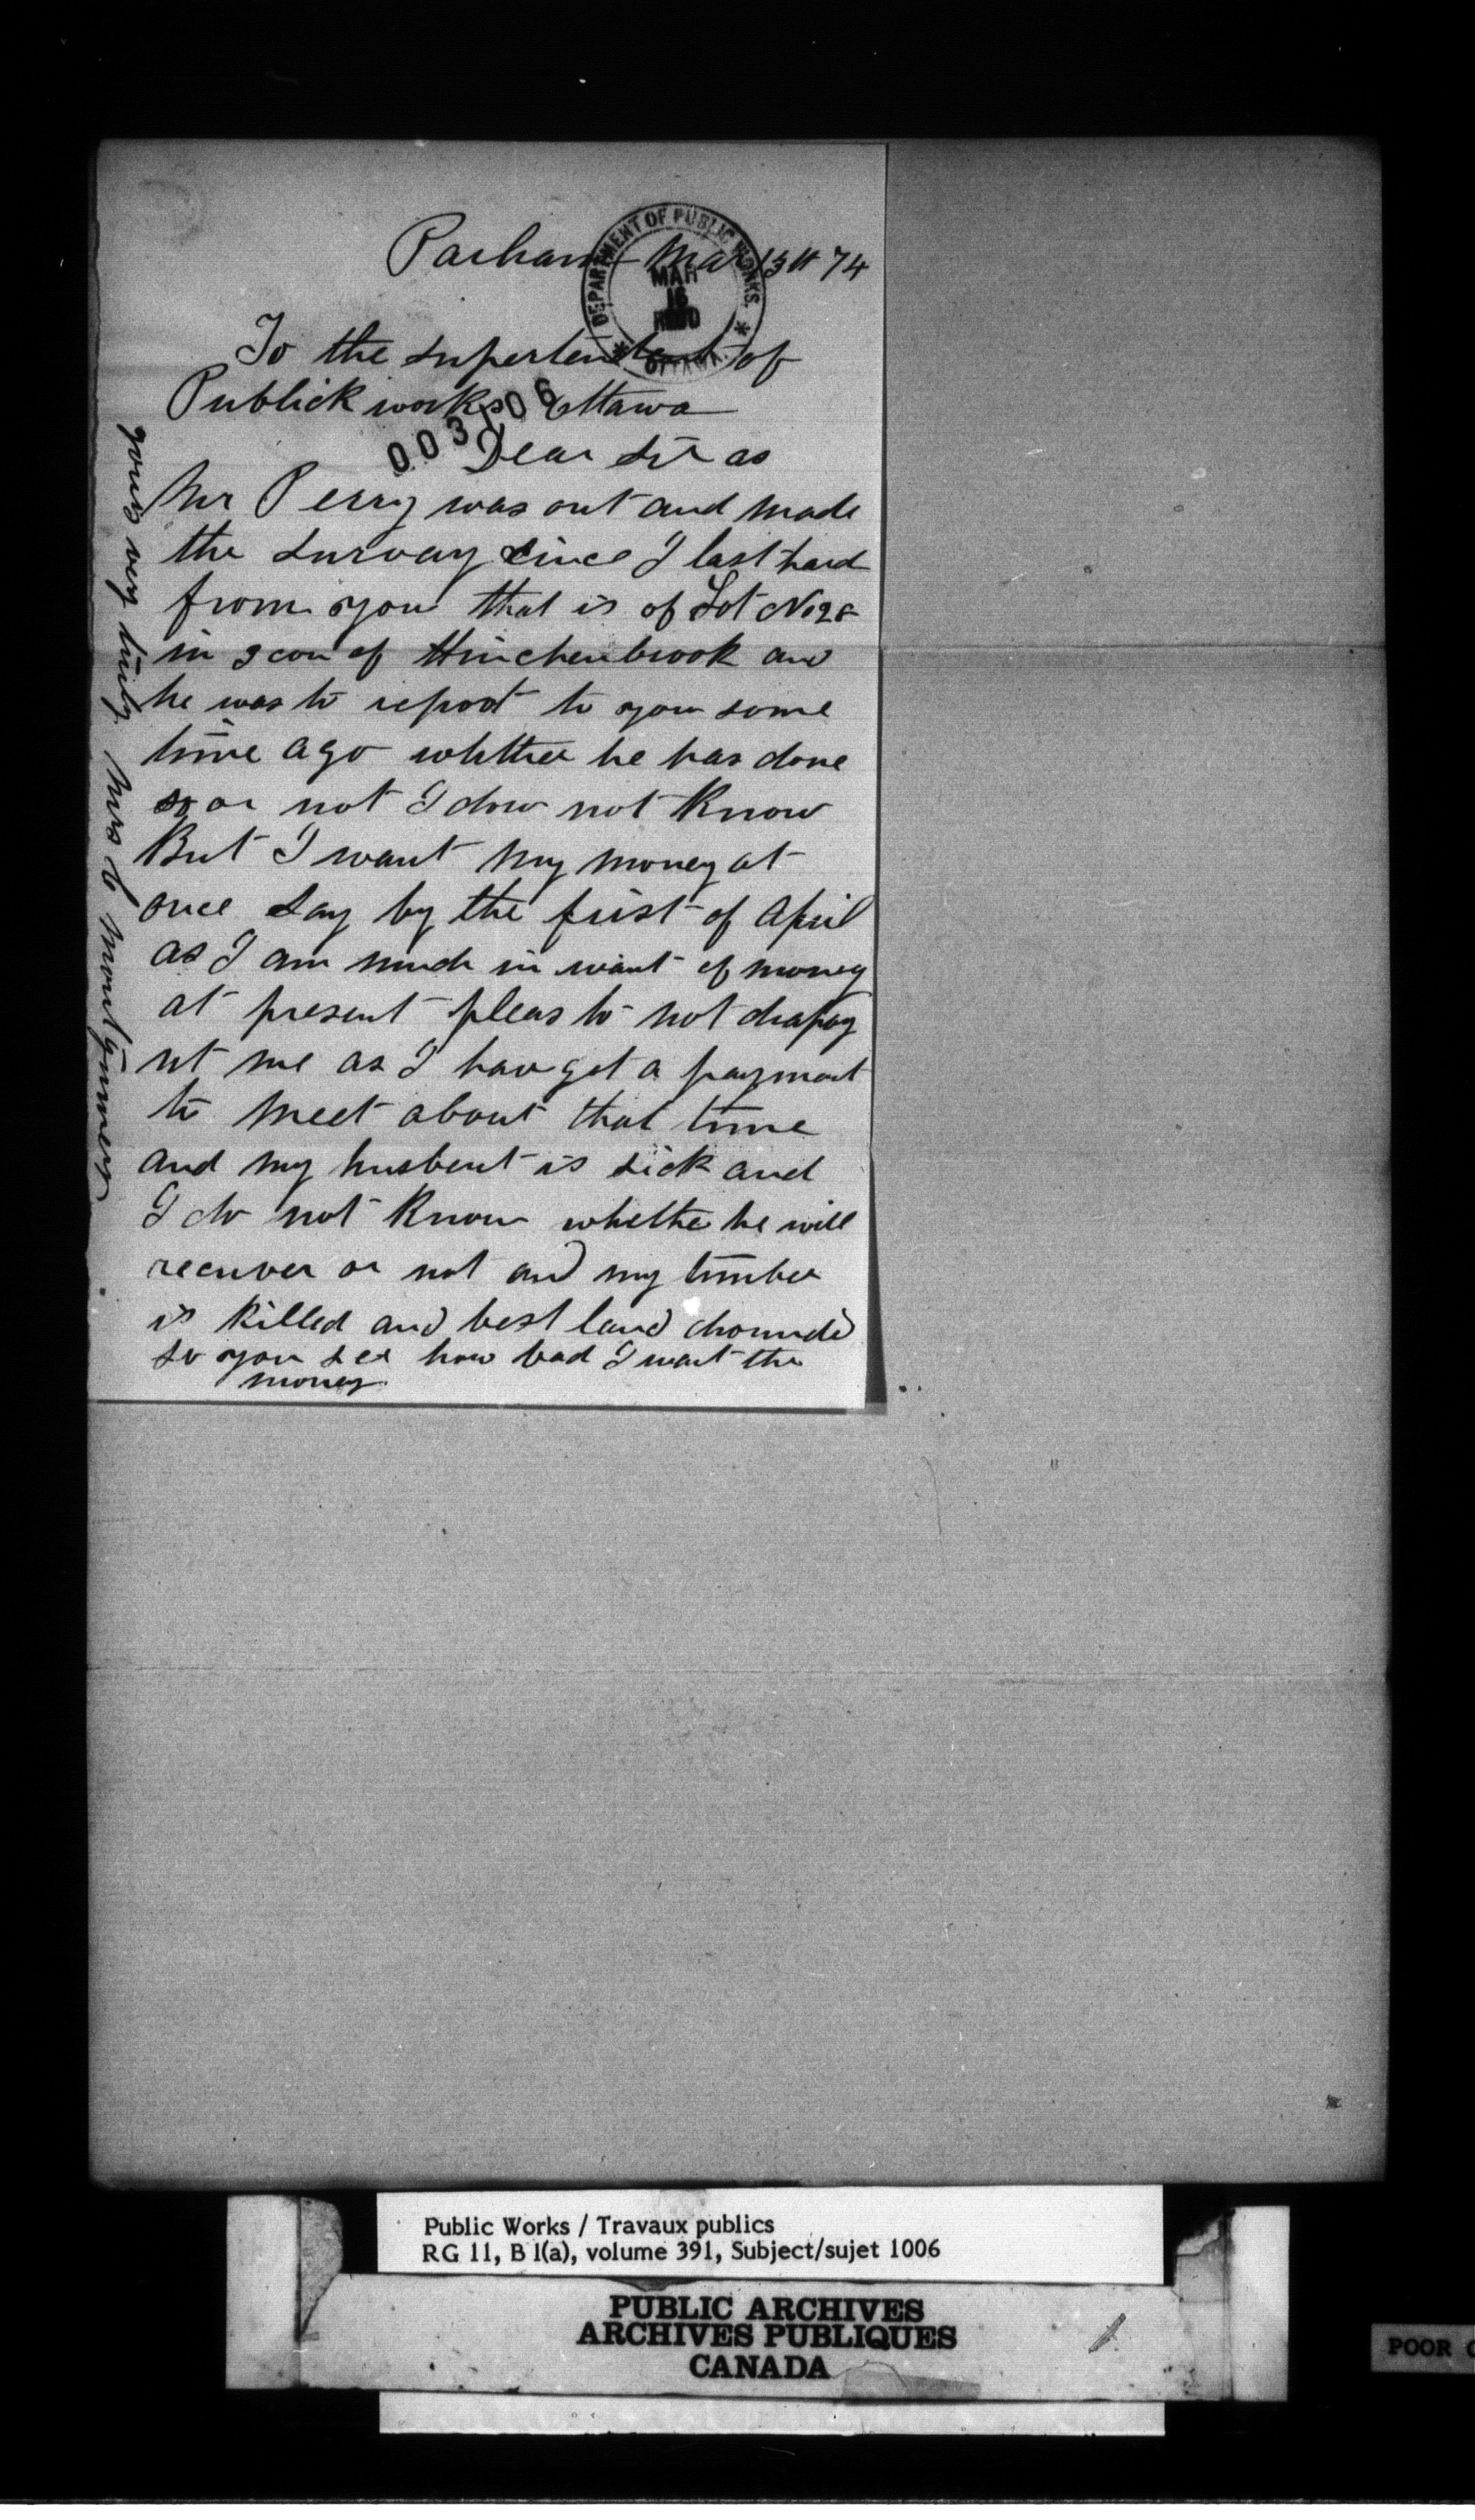 Parham Mar 13th 74
DEPARTMENT OF PUBLIC WORKS.
MAR
16
REC'D
* OTTAWA. *
To the supertendent of
Publick works Ottawa
003106
Dear Sir as
Mr Perry was out and made
the survay since I last hard
from you that is of Lot No 28
in 3 con of Hinchenbrook and
he was to repoot to you some
time ago whither he has done
so or not I dow not Know
But I want my money at
once say by the first of April
as I am much in want of money
at present pleas to not disapoy
nt me as I hav got a payment
to meet about that time
and my husbent is sick and
I do not Know whethe he will
recuver or not and my timber
is Killed and best land drounded
so you see how bad I want the
money
yours very truly Mrs
Public Works / Travaux publics
RG 11, B 1(a), volume 391, Subject/sujet 1006
PUBLIC ARCHIVES
ARCHIVES PUBLIQUES
CANADA
POOR